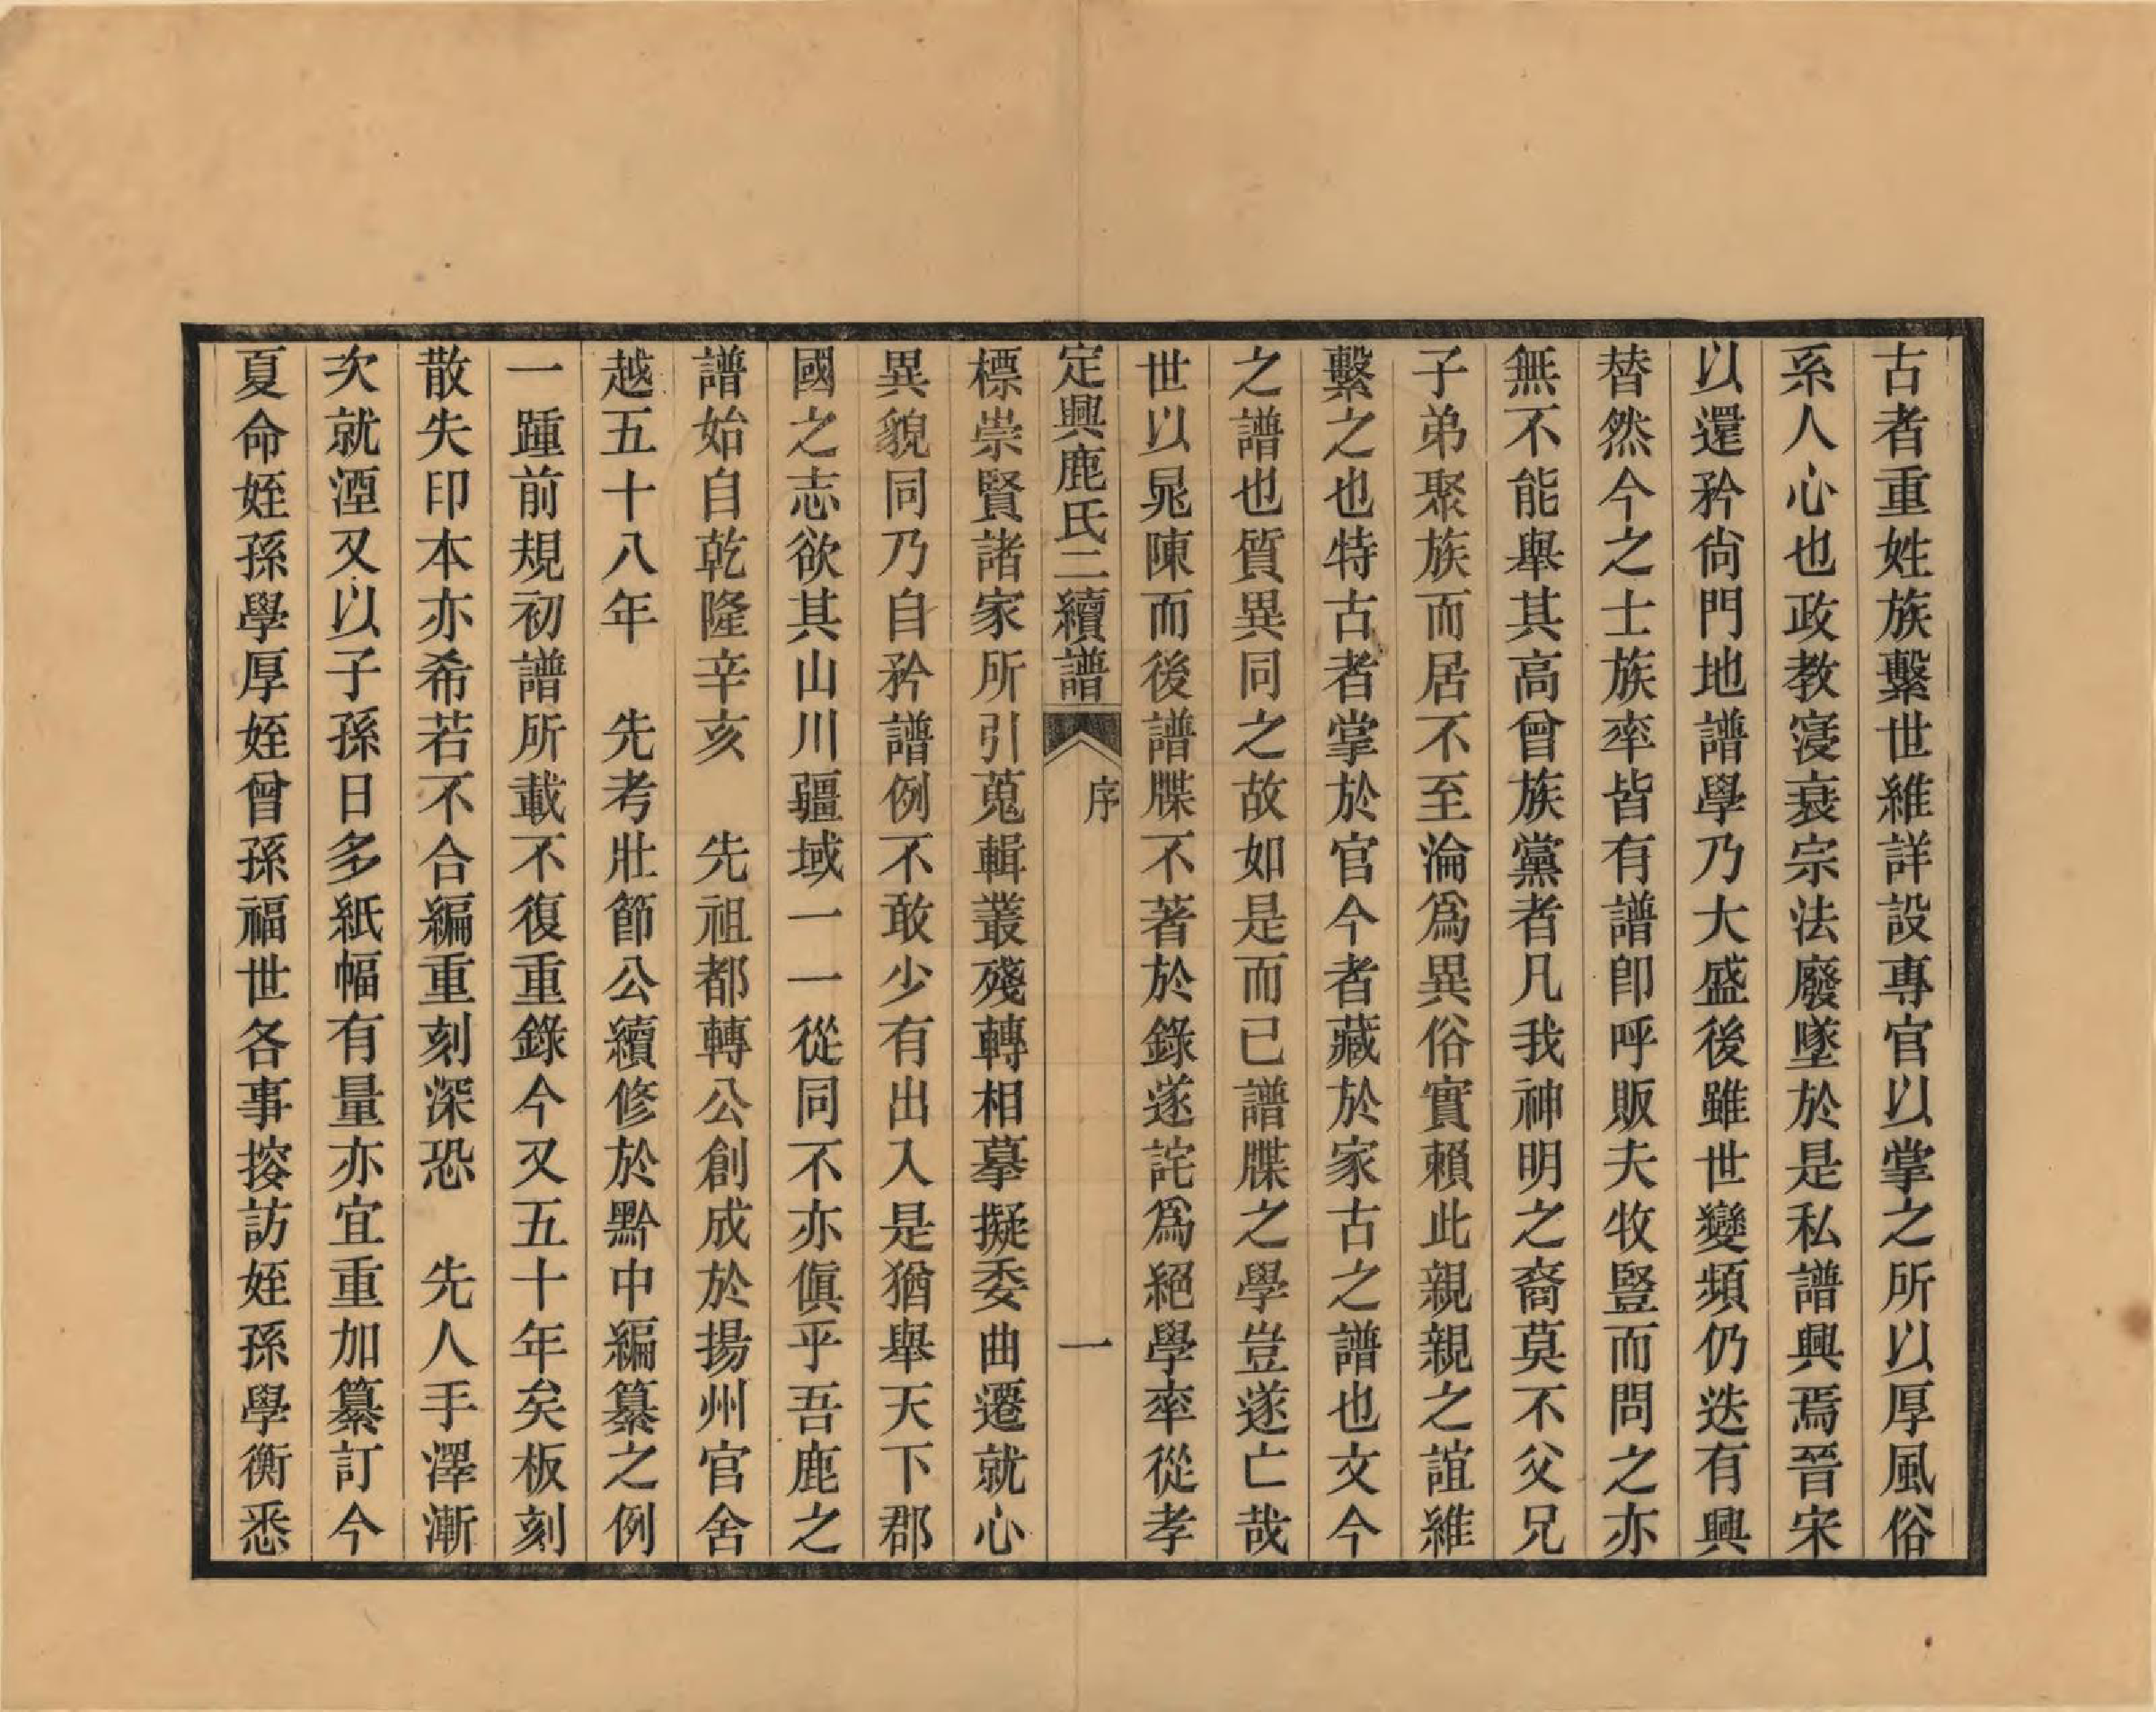 古者重姓族繫世維詳設專官以掌之所以厚風俗
系人心也政教寖衰宗法廢墜於是私譜興焉晉宋
以還矜尙門地譜學乃大盛後雖世變頻仍迭有興
替然今之士族率皆有譜卽呼販夫牧豎而問之亦
無不能舉其高曾族黨者凡我神明之裔莫不父兄
子弟聚族而居不至淪爲異俗實賴此親親之誼維
繫之也特古者掌於官今者藏於家古之譜也文今
之譜也質異同之故如是而已譜牒之學豈遂亡哉
世以晁陳而後譜牒不著於錄遂詫爲絕學率從孝
定興鹿氏二續譜 序 一
標崇賢諸家所引蒐輯叢殘轉相摹擬委曲遷就心
異貌同乃自矜譜例不敢少有出入是猶舉天下郡
國之志欲其山川疆域一一從同不亦傎乎吾鹿之
譜始自乾隆辛亥　先祖都轉公創成於揚州官舍
越五十八年　先考壯節公續修於黔中編纂之例
一踵前規初譜所載不復重錄今又五十年矣板刻
散失印本亦希若不合編重刻深恐　先人手澤漸
次就湮又以子孫日多紙幅有量亦宜重加纂訂今
夏命姪孫學厚姪曾孫福世各事搜訪姪孫學衡悉